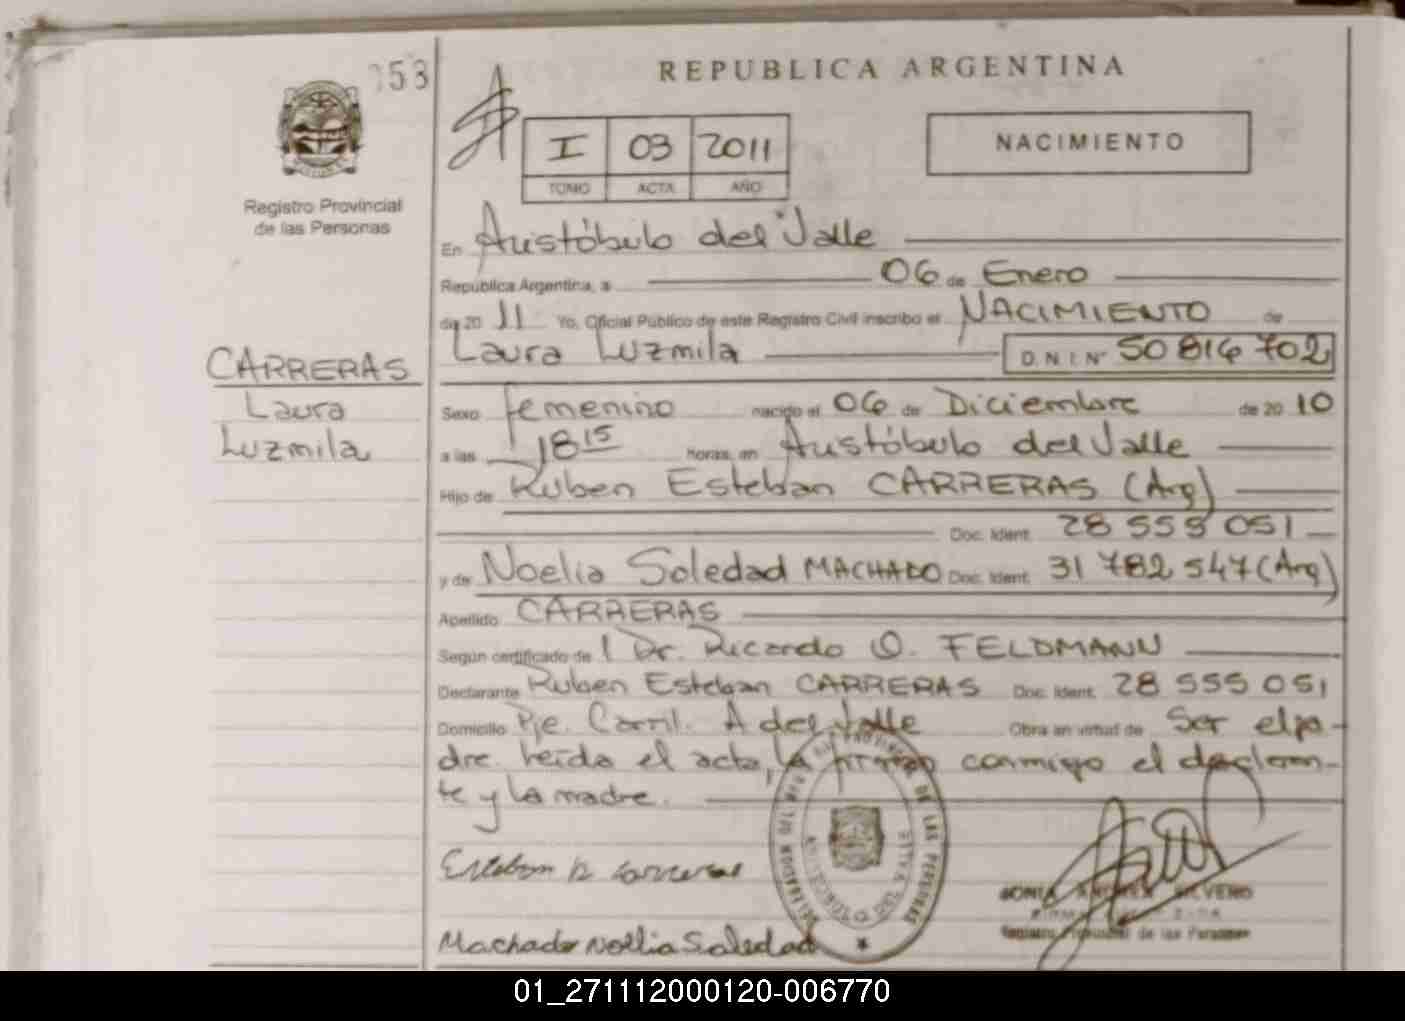 053
REPUBLICA ARGENTINA
I 03 2011
TOMO ACTA AÑO
NACIMIENTO
Registro Provincial
de las Personas
En Aristóbulo del Valle
República Argentina, a 06 de Enero
de 20 11 Yo, Oficial Público de este Registro Civil inscribo el NACIMIENTO de
Laura Luzmila D.N.I. Nº 50 816 702
CARRERAS
Laura
Luzmila
Sexo femenino nacido el 06 de Diciembre de 20 10
a las 18 15 horas, en Aristóbulo del Valle
Hijo de Ruben Esteban CARRERAS (Arg)
Doc. Ident. 28 555 051
y de Noelia Soledad MACHADO Doc. Ident. 31 782 547 (Arg)
Apellido CARRERAS
Según certificado de 1 Dr. Ricardo O. FELDMANN
Declarante Ruben Esteban CARRERAS Doc. Ident. 28 555 051
Domicilio Pje. Carril. A del Valle Obra en virtud de Ser el pa-
dre. leída el acta, la firman conmigo el declaran-
te y la madre.
Esteban R Carreras
Machado Noelia Soledad
Registro Provincial de las Personas
01_271112000120-006770